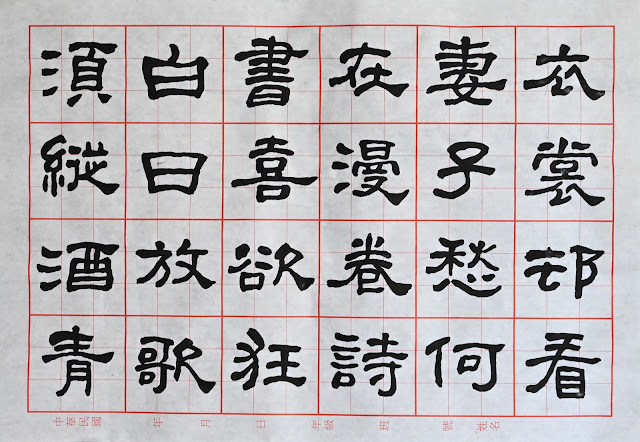 衣裳却看
妻子愁何
在漫卷詩
書喜欲狂
白日放歌
須縱酒青
中華民國 年 月 日 年級 班 號 姓名